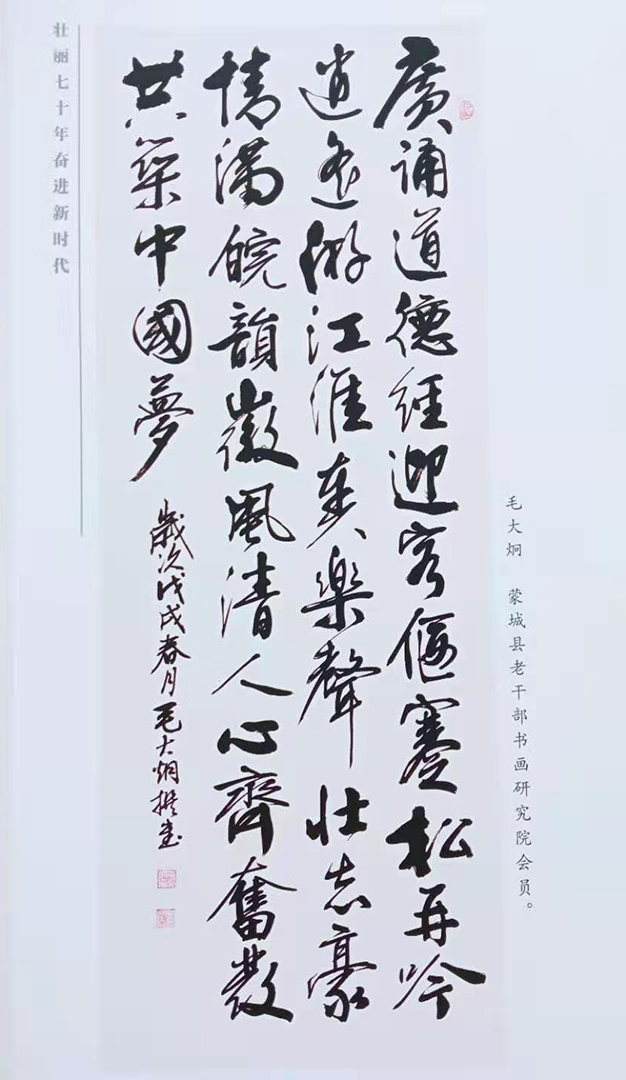 廣誦道德經迎客偃蹇松再吟
逍遙游江淮奏樂聲壯志豪
情滿皖韻徽風清人心齊奮發
共築中國夢
歲次戊戌春月毛大炯撰書
毛大炯 蒙城县老干部书画研究院会员。
壮丽七十年奋进新时代